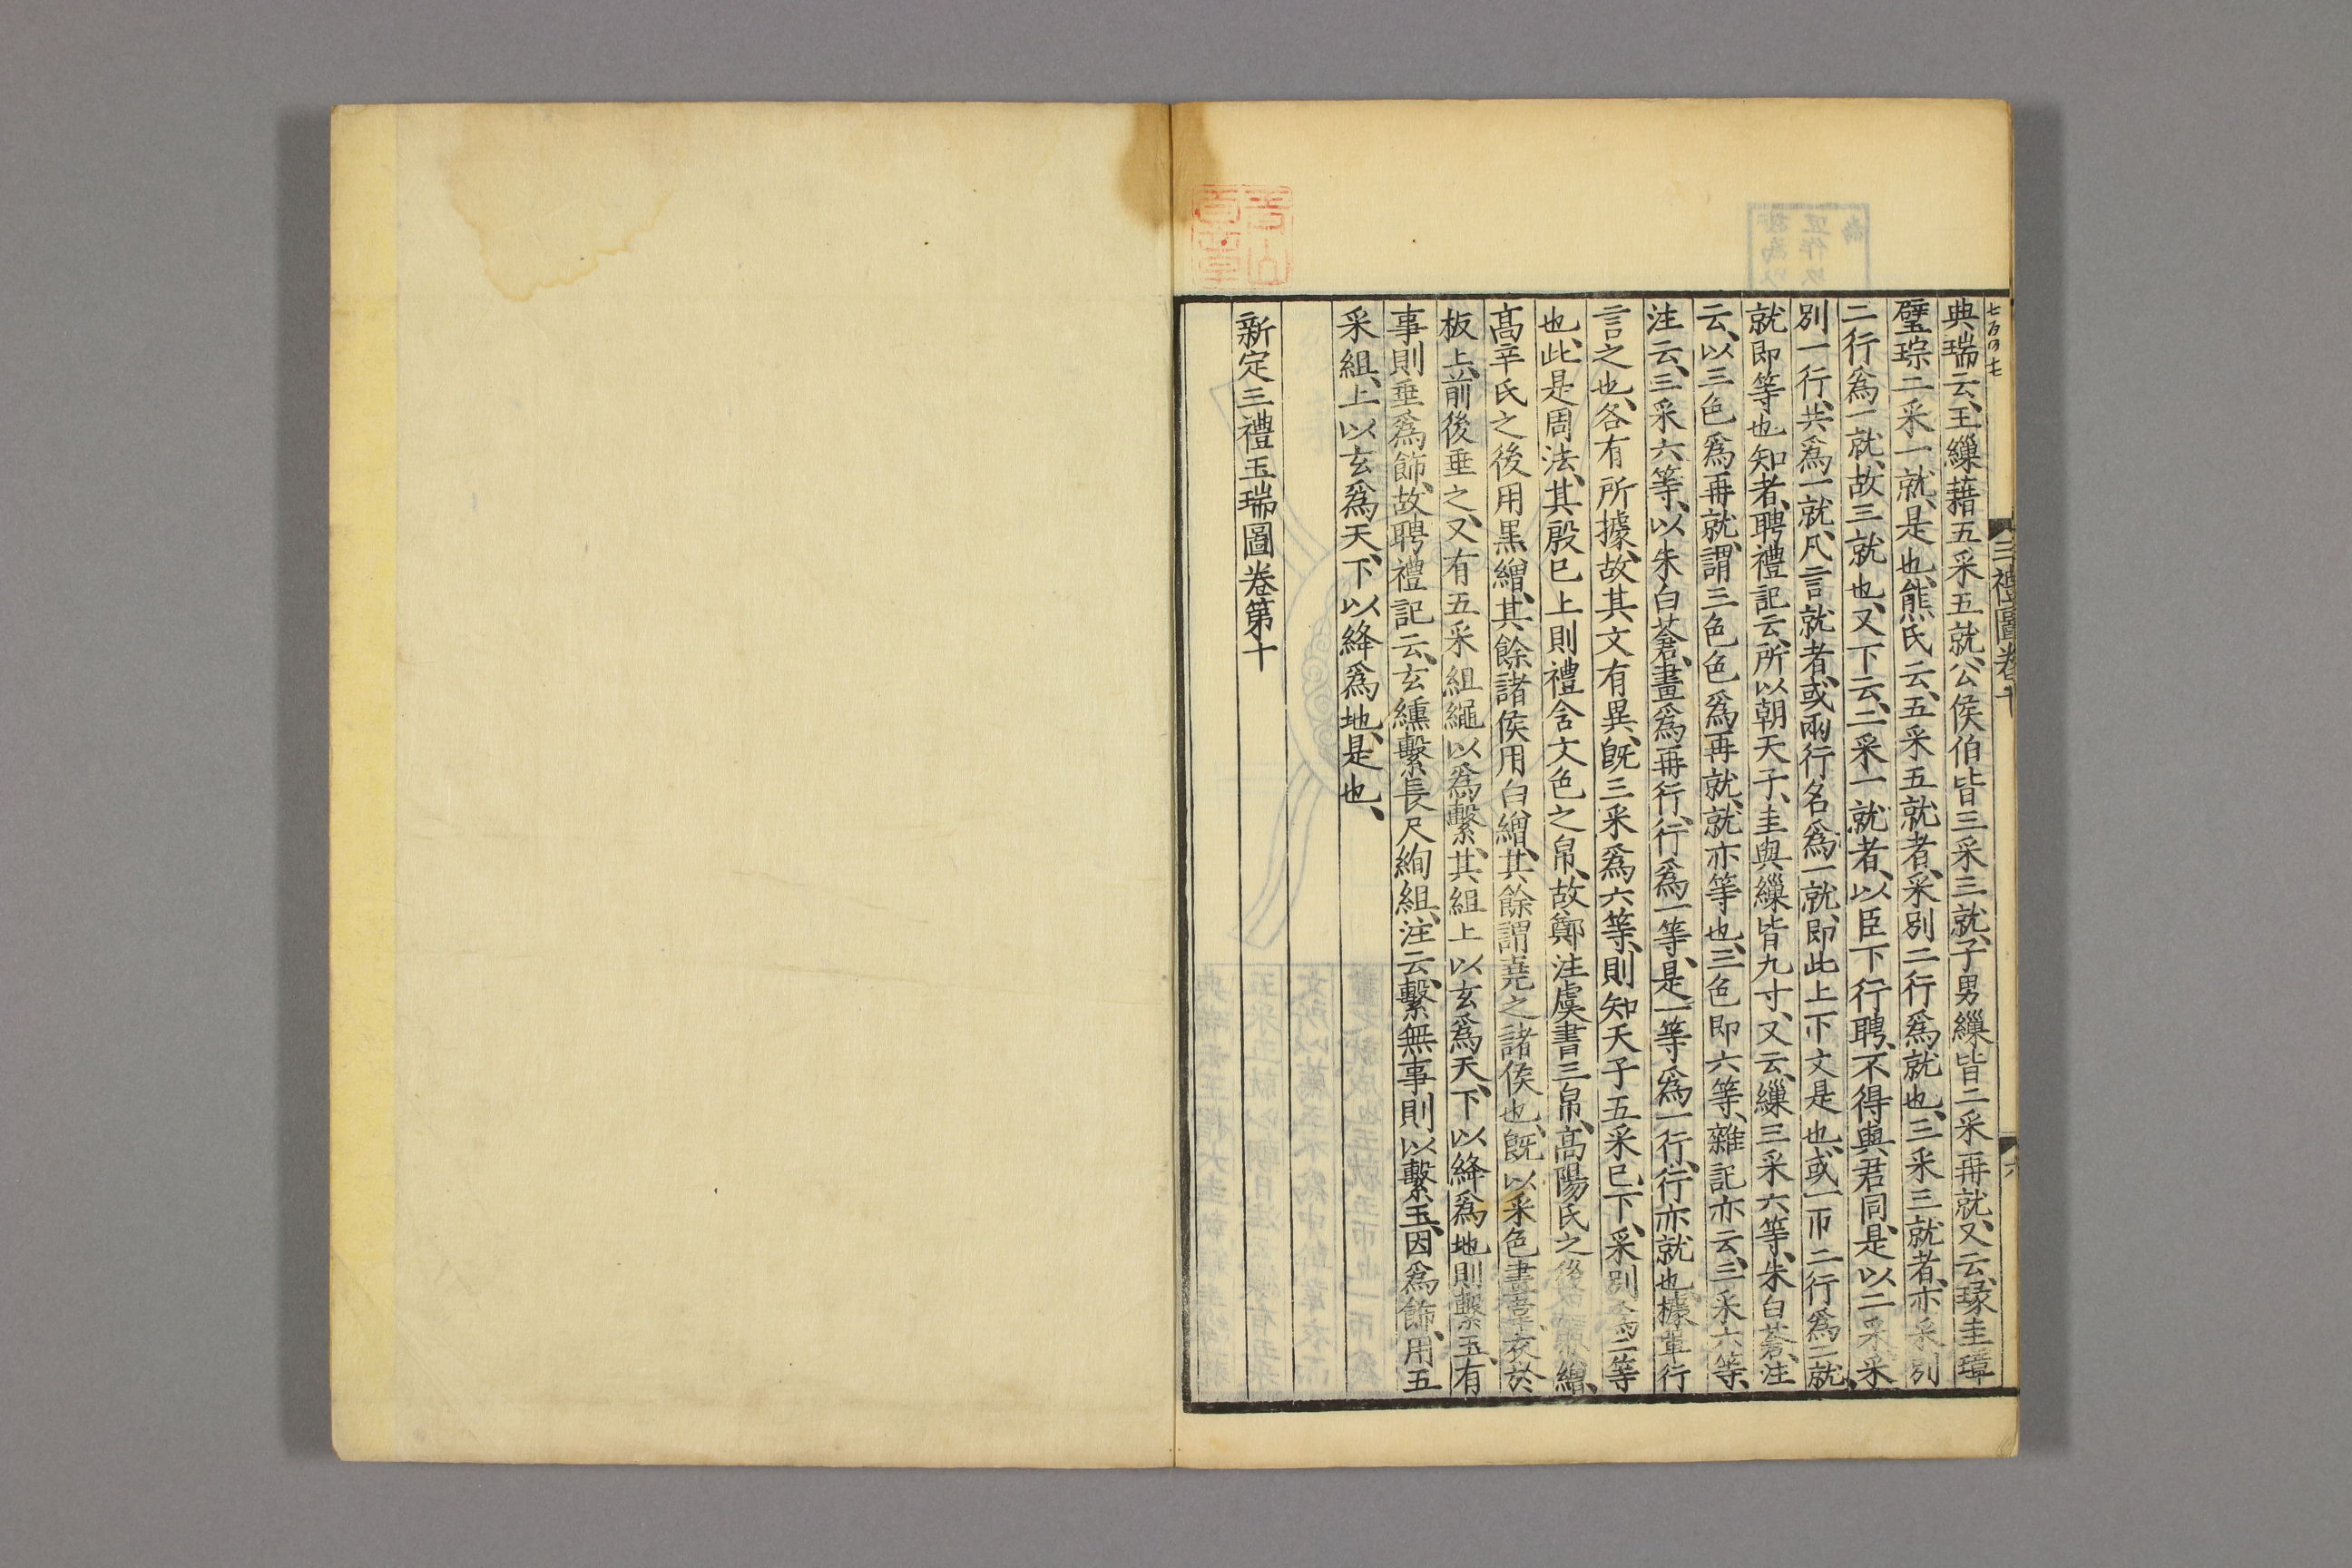 三禮圖卷十
六
典瑞云、王繅藉五采五就、公侯伯皆三采三就、子男繅皆二采再就、又云、瑑圭璋
璧琮二采一就、是也、熊氏云、五采五就者、采別二行爲就也、三采三就者、亦采別
二行爲一就、故三就也、又下云、二采一就者、以臣下行聘、不得與君同、是以二采采
別一行、共爲一就、凡言就者、或兩行名爲一就、即此上下文是也、或一帀二行爲二就、
就即等也知者、聘禮記云、所以朝天子、圭與繅皆九寸、又云、繅三采六等、朱白蒼、注
云、以三色爲再就、謂三色色爲再就、就亦等也、三色即六等、雜記亦云、三采六等、
注云、三采六等、以朱白蒼、畫爲再行、行爲一等、是一等爲一行、行亦就也、據單行
言之也、各有所據、故其文有異、旣三采爲六等、則知天子五采已下、采別爲二等
也、此是周法、其殷已上則禮含文色之帛、故鄭注虞書三帛、高陽氏之後繒、
高辛氏之後用黒繒、其餘諸侯用白繒、其餘謂堯之諸侯也、旣以采色畫韋衣於
板上、前後垂之、又有五采組繩以爲繫、其組上以玄爲天、下以絳爲地則繫玉、有
事則垂爲飾、故聘禮記云、玄纁繫長尺絢組、注云、繫無事則以繫玉、因爲飾、用五
采組、上以玄爲天、下以絳爲地、是也、
新定三禮玉瑞圖卷第十